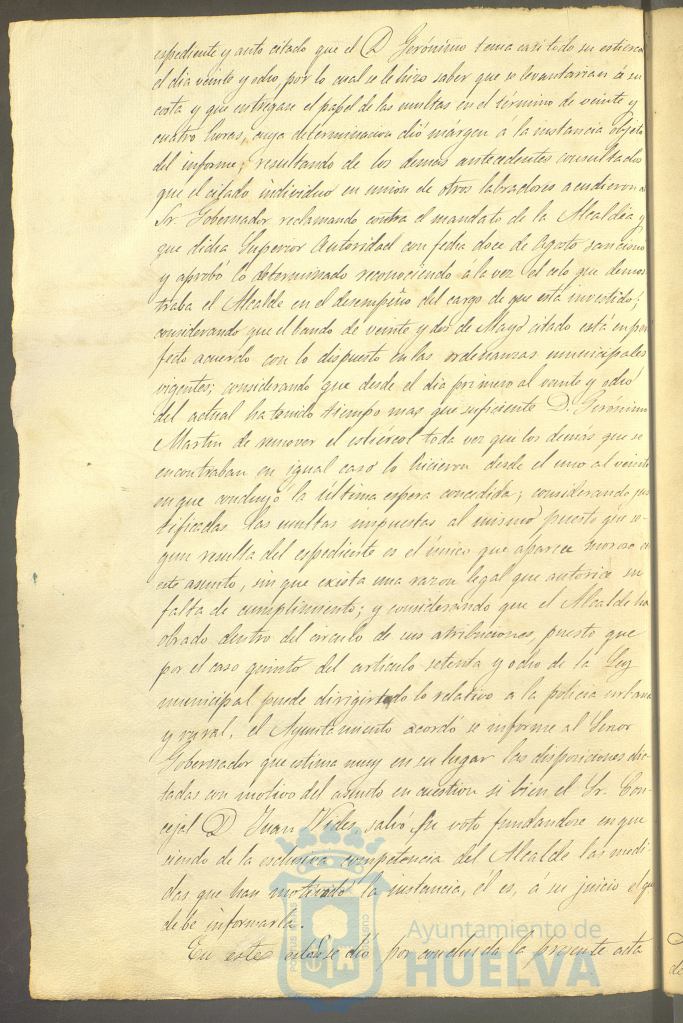 espediente y auto citado que el D. Gerónimo tenia casi todo su estiercol
el dia veinte y ocho por lo cual se le hizo saber que se levantarian á su
costa y que entregase el papel de las multas en el término de veinte y
cuatro horas, cuya determinacion dió márgen á la instancia objeto
del informe; resultando de los demas antecedentes consultados
que el citado individuo en union de otros labradores acudieron al
Sr. Gobernador reclamando contra el mandato de la Alcaldia y
que dicha Superior Autoridad con fecha doce de Agosto sancionó
y aprobó lo determinado reconociendo a la vez el celo que demos
traba el Alcalde en el desempeño del cargo de que está investido;
considerando que el bando de veinte y dos de Mayo citado está en per
fecto acuerdo con lo dispuesto en las ordenanzas municipales
vigentes; considerando que desde el dia primero al veinte y ocho
del actual ha tenido tiempo mas que suficiente D. Gerónimo
Martin de remover el estiércol toda vez que los demás que se
encontraban en igual caso lo hicieron desde el uno al veinte
en que concluyó la última espera concedida; considerando jus
tificadas las multas impuestas al mismo puesto que se-
gun resulta del espediente es el único que aparece moroso en
este asunto, sin que exista una razon legal que autorice su
falta de cumplimiento; y considerando que el Alcalde ha
obrado dentro del circulo de sus atribuciones, puesto que
por el caso quinto del artículo setenta y ocho de la Ley
municipal puede dirigir todo lo relativo a la policia urbana
y rural, el Ayuntamiento acordó se informe al Señor
Gobernador que estima muy en su lugar las disposiciones dic
tadas con motivo del asunto en cuestion si bien el Sr. Con-
cejal D. Juan salvó su voto fundandose en que
siendo de la esclusiva competencia del Alcalde las medi-
das que han motivado la instancia, él es, á su juicio el que
debe informarla.
En este estado se dió por concluida la presente acta
Ayuntamiento de
HUELVA